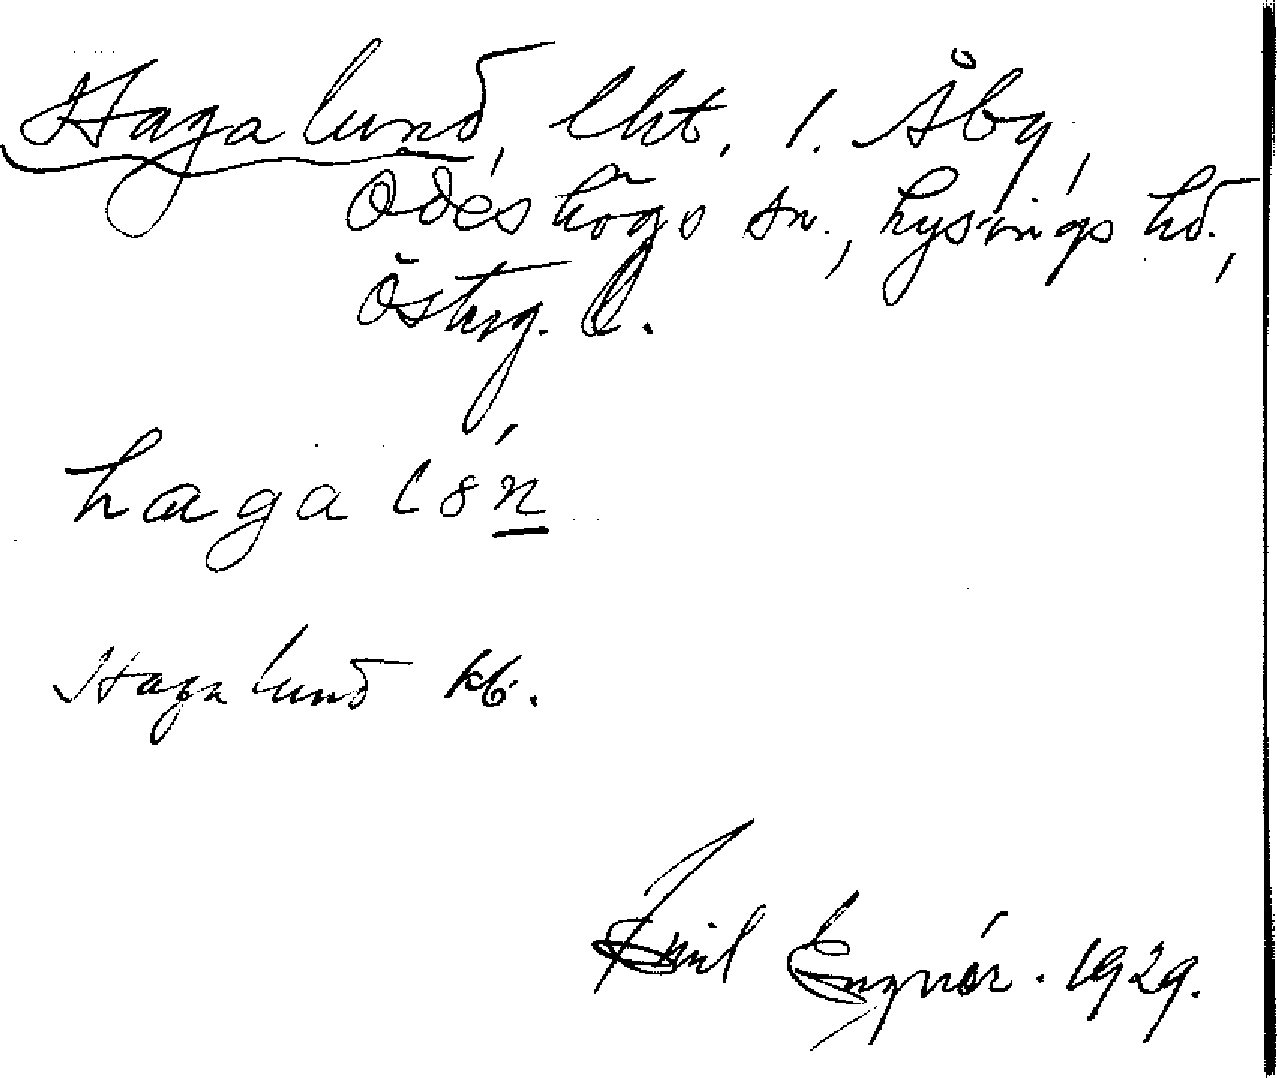 Hagalund, lht. 1. Åby,
Ödeshögs sn., Lysings hd.,
Östrg. l.
haga lŏn
Hagalund kb.
Emil 1929.